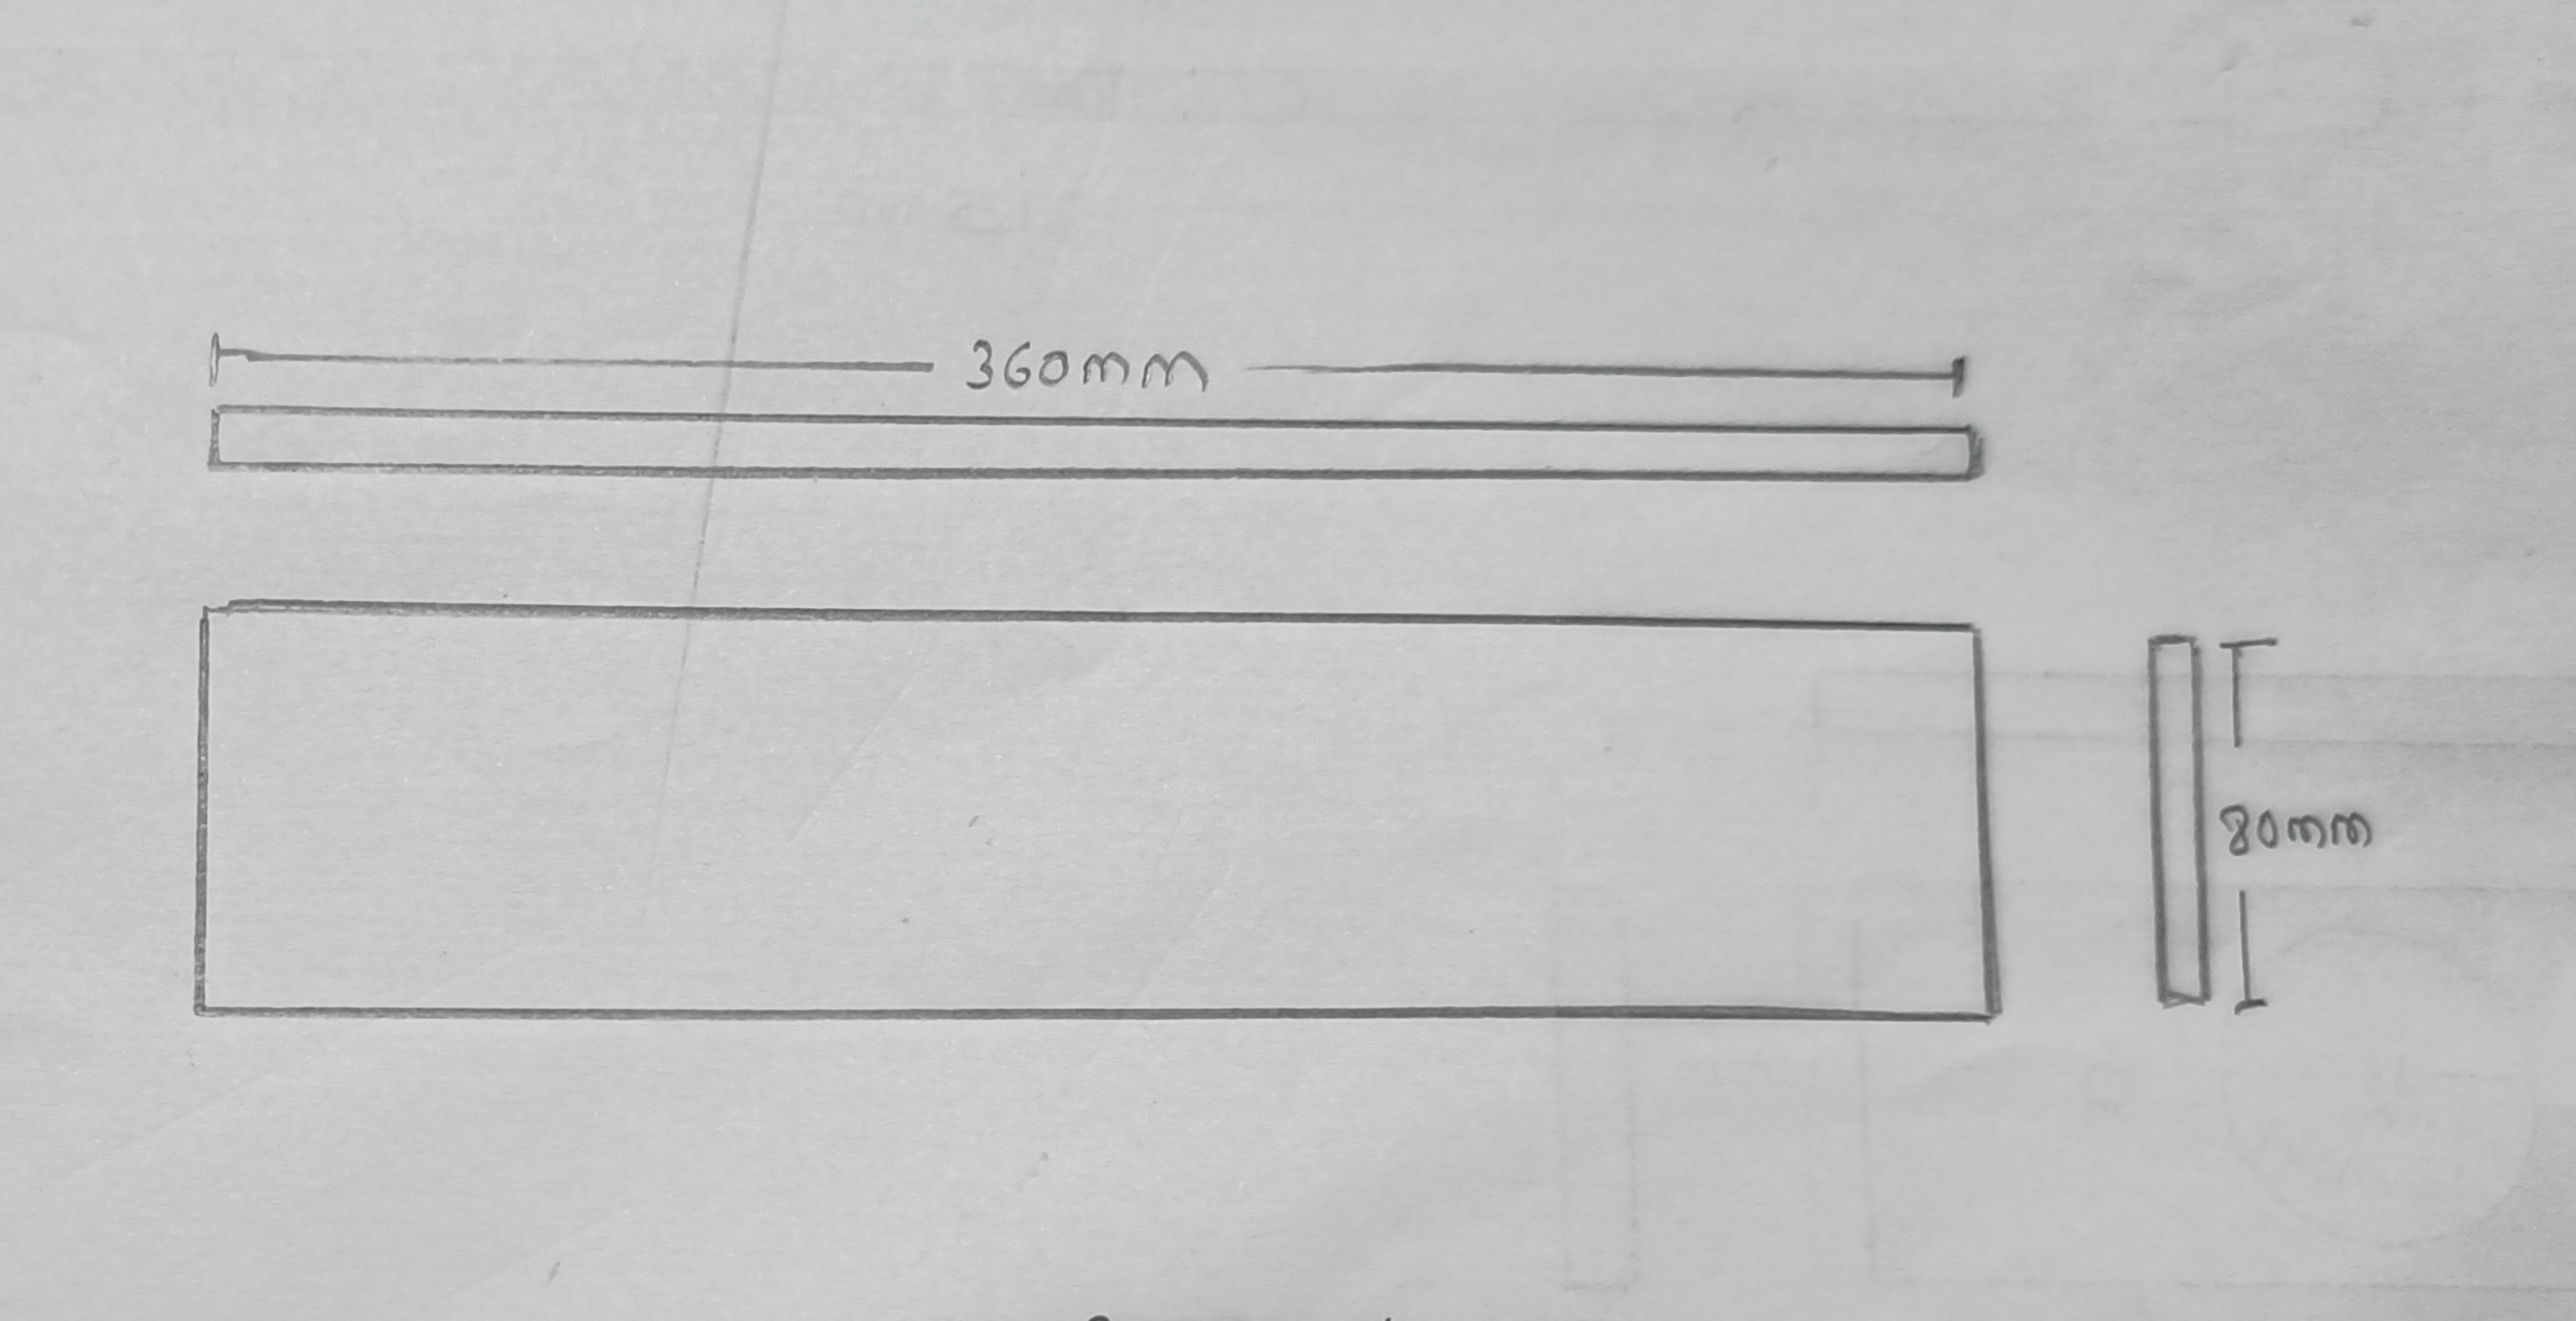 360mm
80mm